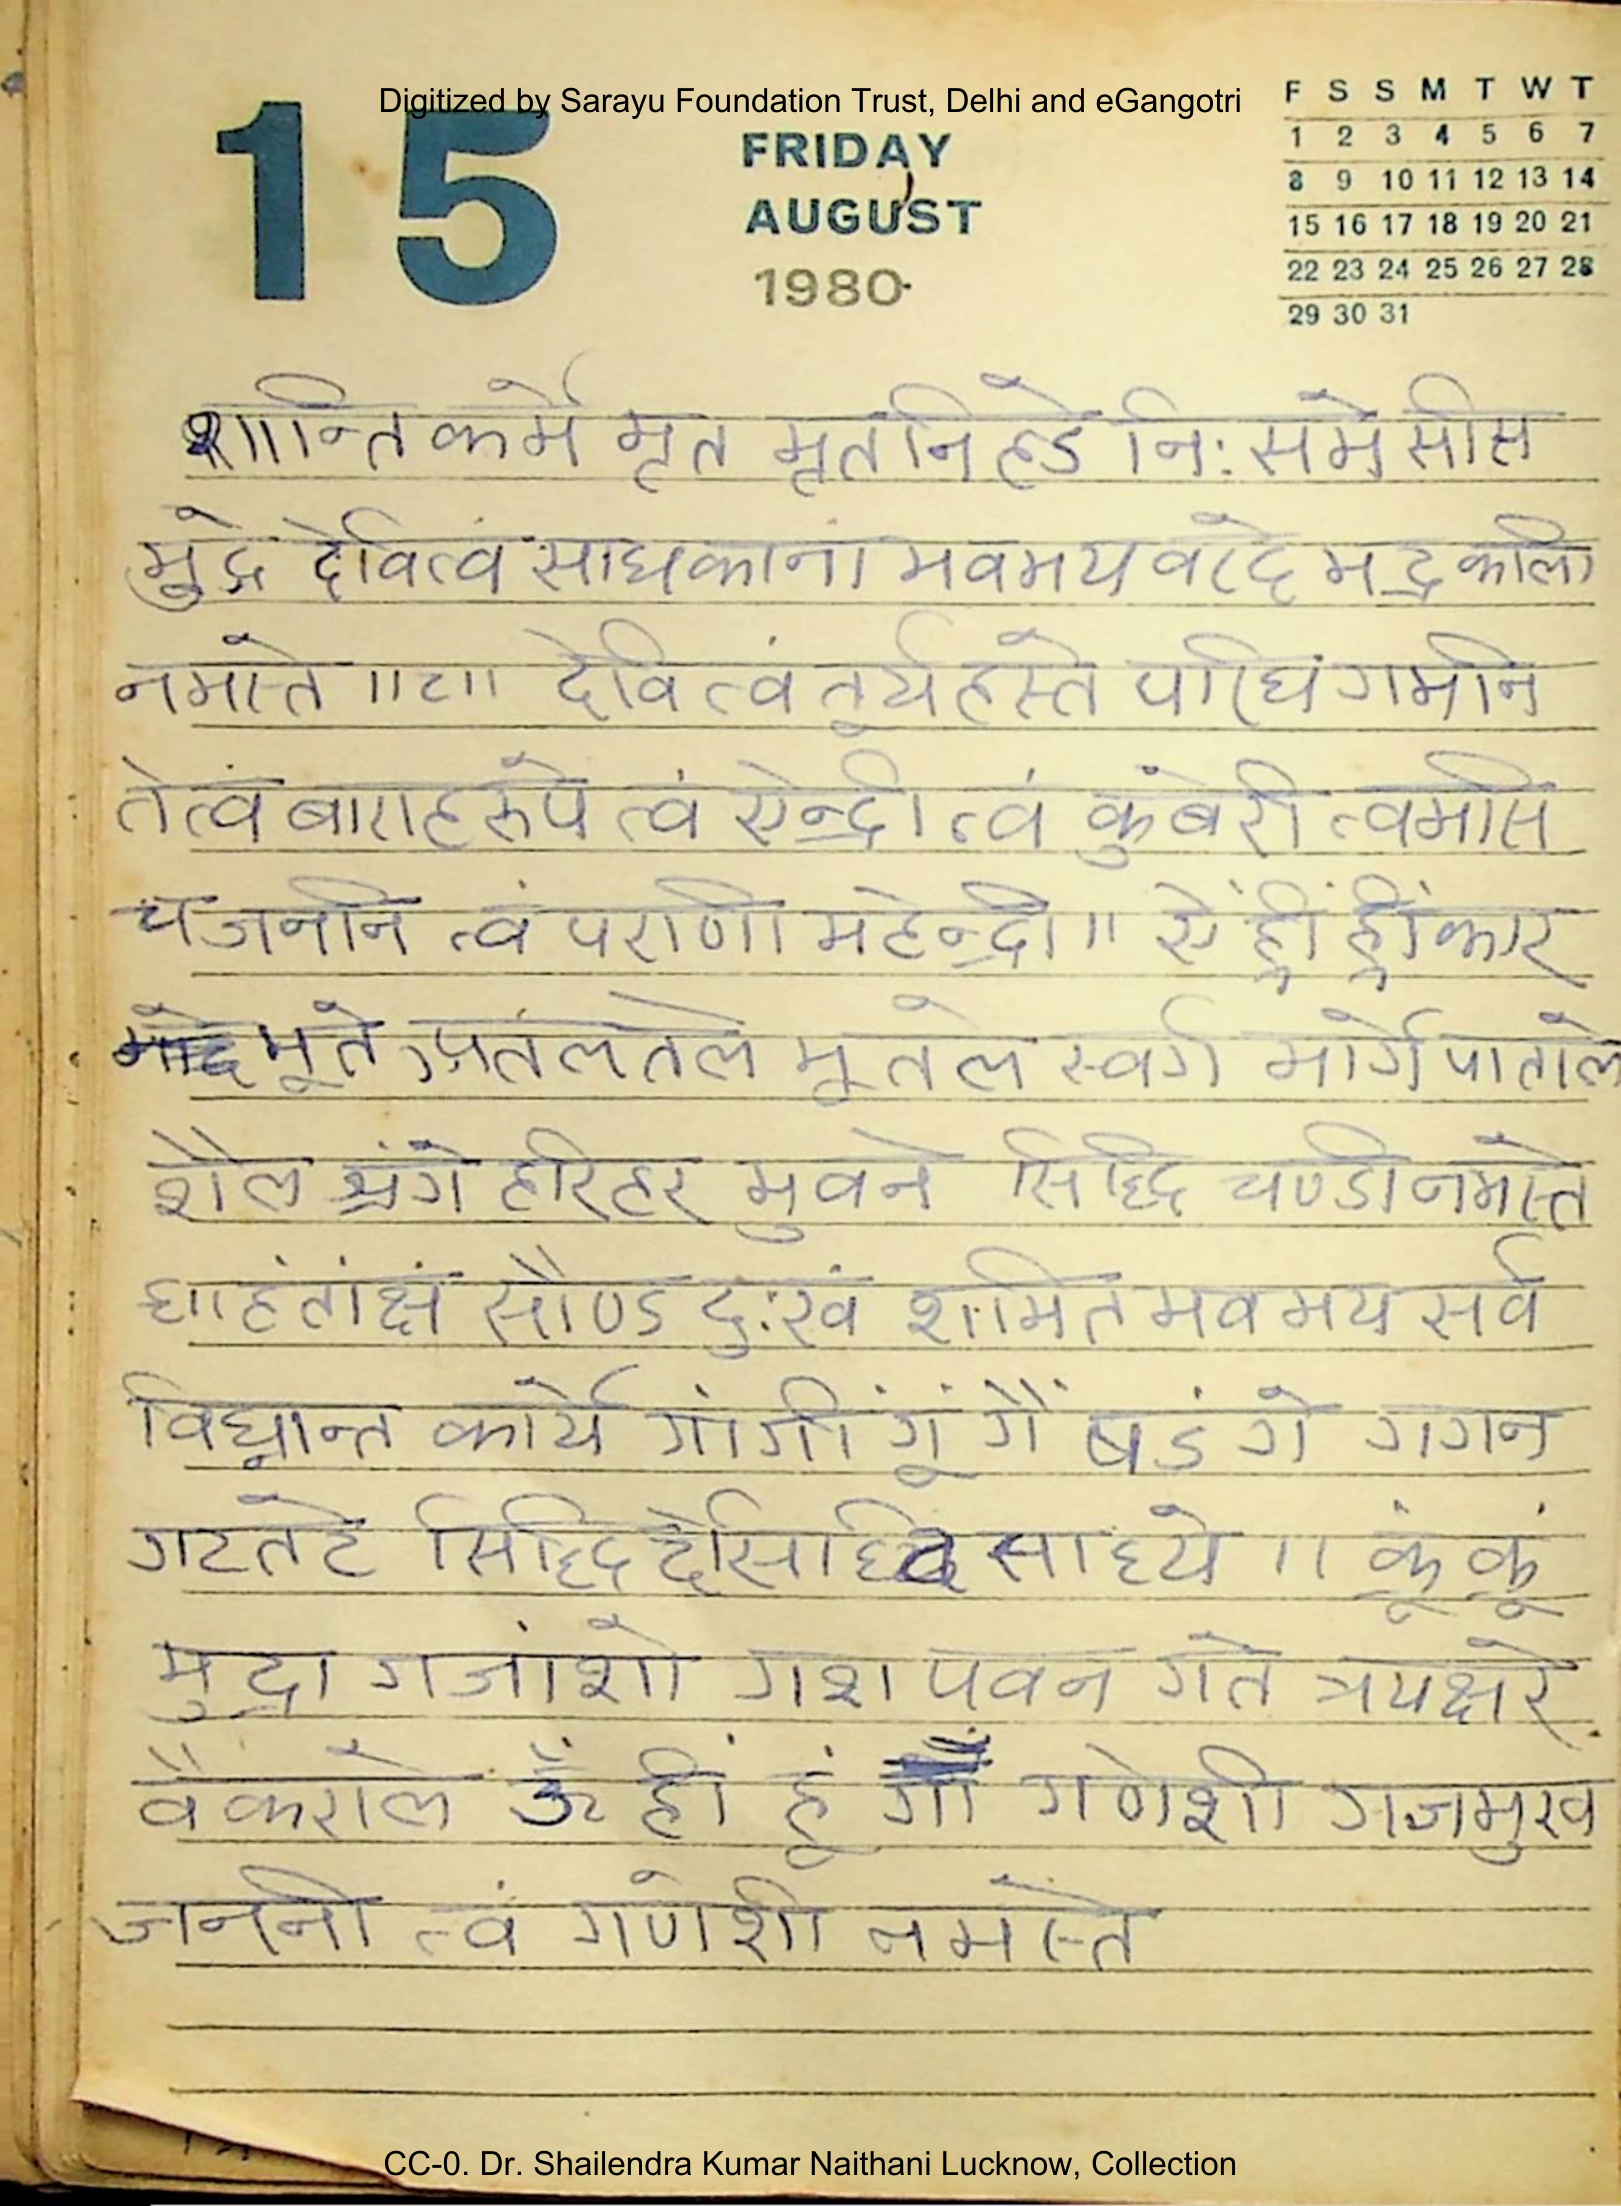 Digitized by Sarayu Foundation Trust, Delhi and eGangotri
15
FRIDAY
AUGUST
1980
F S S M T W T
1 2 3 4 5 6 7
8 9 10 11 12 13 14
15 16 17 18 19 20 21
22 23 24 25 26 27 28
29 30 31
शान्ति कर्मे मृत मृत निहडे नि: समे सीस
मुद्रे देवित्वं साधकानां भवभय वरदे भद्रकाली
नमस्ते ॥८॥ देवि त्वं तूर्यहस्ते परिघ गमनि
ते त्वं बाराहरूपे त्वं ऐन्द्री त्वं कुंबेरी त्वमसि
च जननि त्वं पराणी महेन्द्री ॥ ऐं ह्रीं ह्रींकार
भूते प्रतलतले भूतले स्वर्ग मार्गे पाताले
शैल श्रंगे हरिहर भुवने सिद्धि चण्डी नमस्ते
घाहंतांक्षं सौण्ड दुःखं शमित भवभय सर्व
विघ्नान्त कार्ये गां गीं गूं गैं षडंगे गगन
गटतटे सिद्धिदे सिद्धि साध्ये ॥ क्रूं क्रूं
मुद्रा गजांशो गश पवन गते त्रयक्षरे
वैकराले ॐ हीं हूं गां गणेशी गजमुख
जननी त्वं गणेशी नमस्ते
CC-0. Dr. Shailendra Kumar Naithani Lucknow, Collection